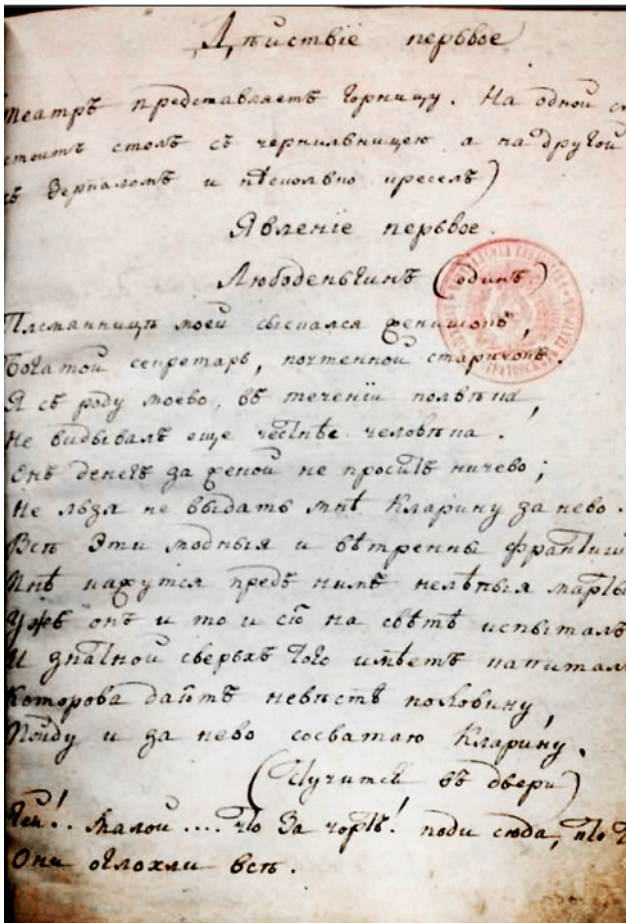 Дѣйствіе первое
Театръ представляетъ горницу. На одной
стоитъ столъ съ чернильницею а на другой
съ зеркаломъ и нѣсколько креселъ)
Явленіе первое.
Любоденьгинъ (одинъ)
Племянницѣ моей сыскался женишокъ,
Богатой секретарь, почтенной старичокъ.
Я съ роду моево, въ теченіи полвѣка,
Не видывалъ еще честнѣе человѣка.
Онъ денегъ за женой не проситъ ничево;
Не льзя не выдать мнѣ Кларину за нево.
Всѣ эти модныя и вѣтренны
Мнѣ кажутся предъ нимъ нелѣпыя
Ужъ онъ и то и сіо на свѣтѣ испыталъ
И знатной сверьхъ того имѣетъ капиталъ
Которова даётъ невѣстѣ половину,
Пойду и за нево сосватаю Кларину.
(Стучится въ двери)
Гей!.. Малой.... что за чортъ! поди сюда, что
Они оглохли всѣ.